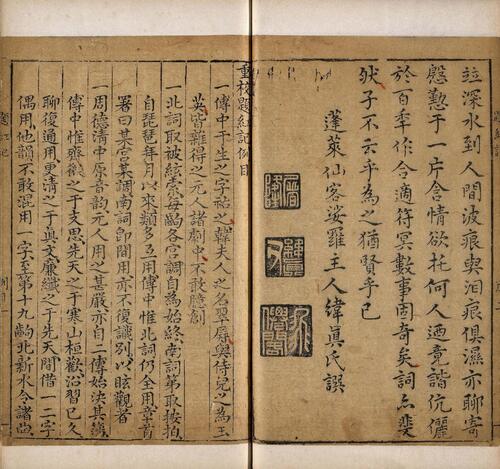 竝深水到人間波痕與泪痕俱濕亦聊寄
慇懃于一片含情欲托何人迺竟諧伉儷
於百季作合適符冥數事固奇矣詞亦斐
然子不云乎為之猶賢乎已
蓬萊仙客娑羅主人緯真氏譔
重校題紅記例目
一傳中于生之字祐之韓夫人之名翠屏與侍兒之為玉
英皆雜得之元人諸劇中不敢臆創
一北詞取被絃索每齣各宮調自為始終南詞第取按拍
自琵琶拜月以來類多互用傳中惟北詞仍全用章首
署曰某宮某調南詞即間用亦不復識別以眩觀者
一周德清中原音韻元人用之甚嚴亦自二傳始決其藩
傳中惟齊微之于支思先天之于寒山桓歡沿習已久
聊復通用更清之于真文廉纖之于先天間借一二字
偶用他韻不敢混用一字至第十九齣北新水令諸曲